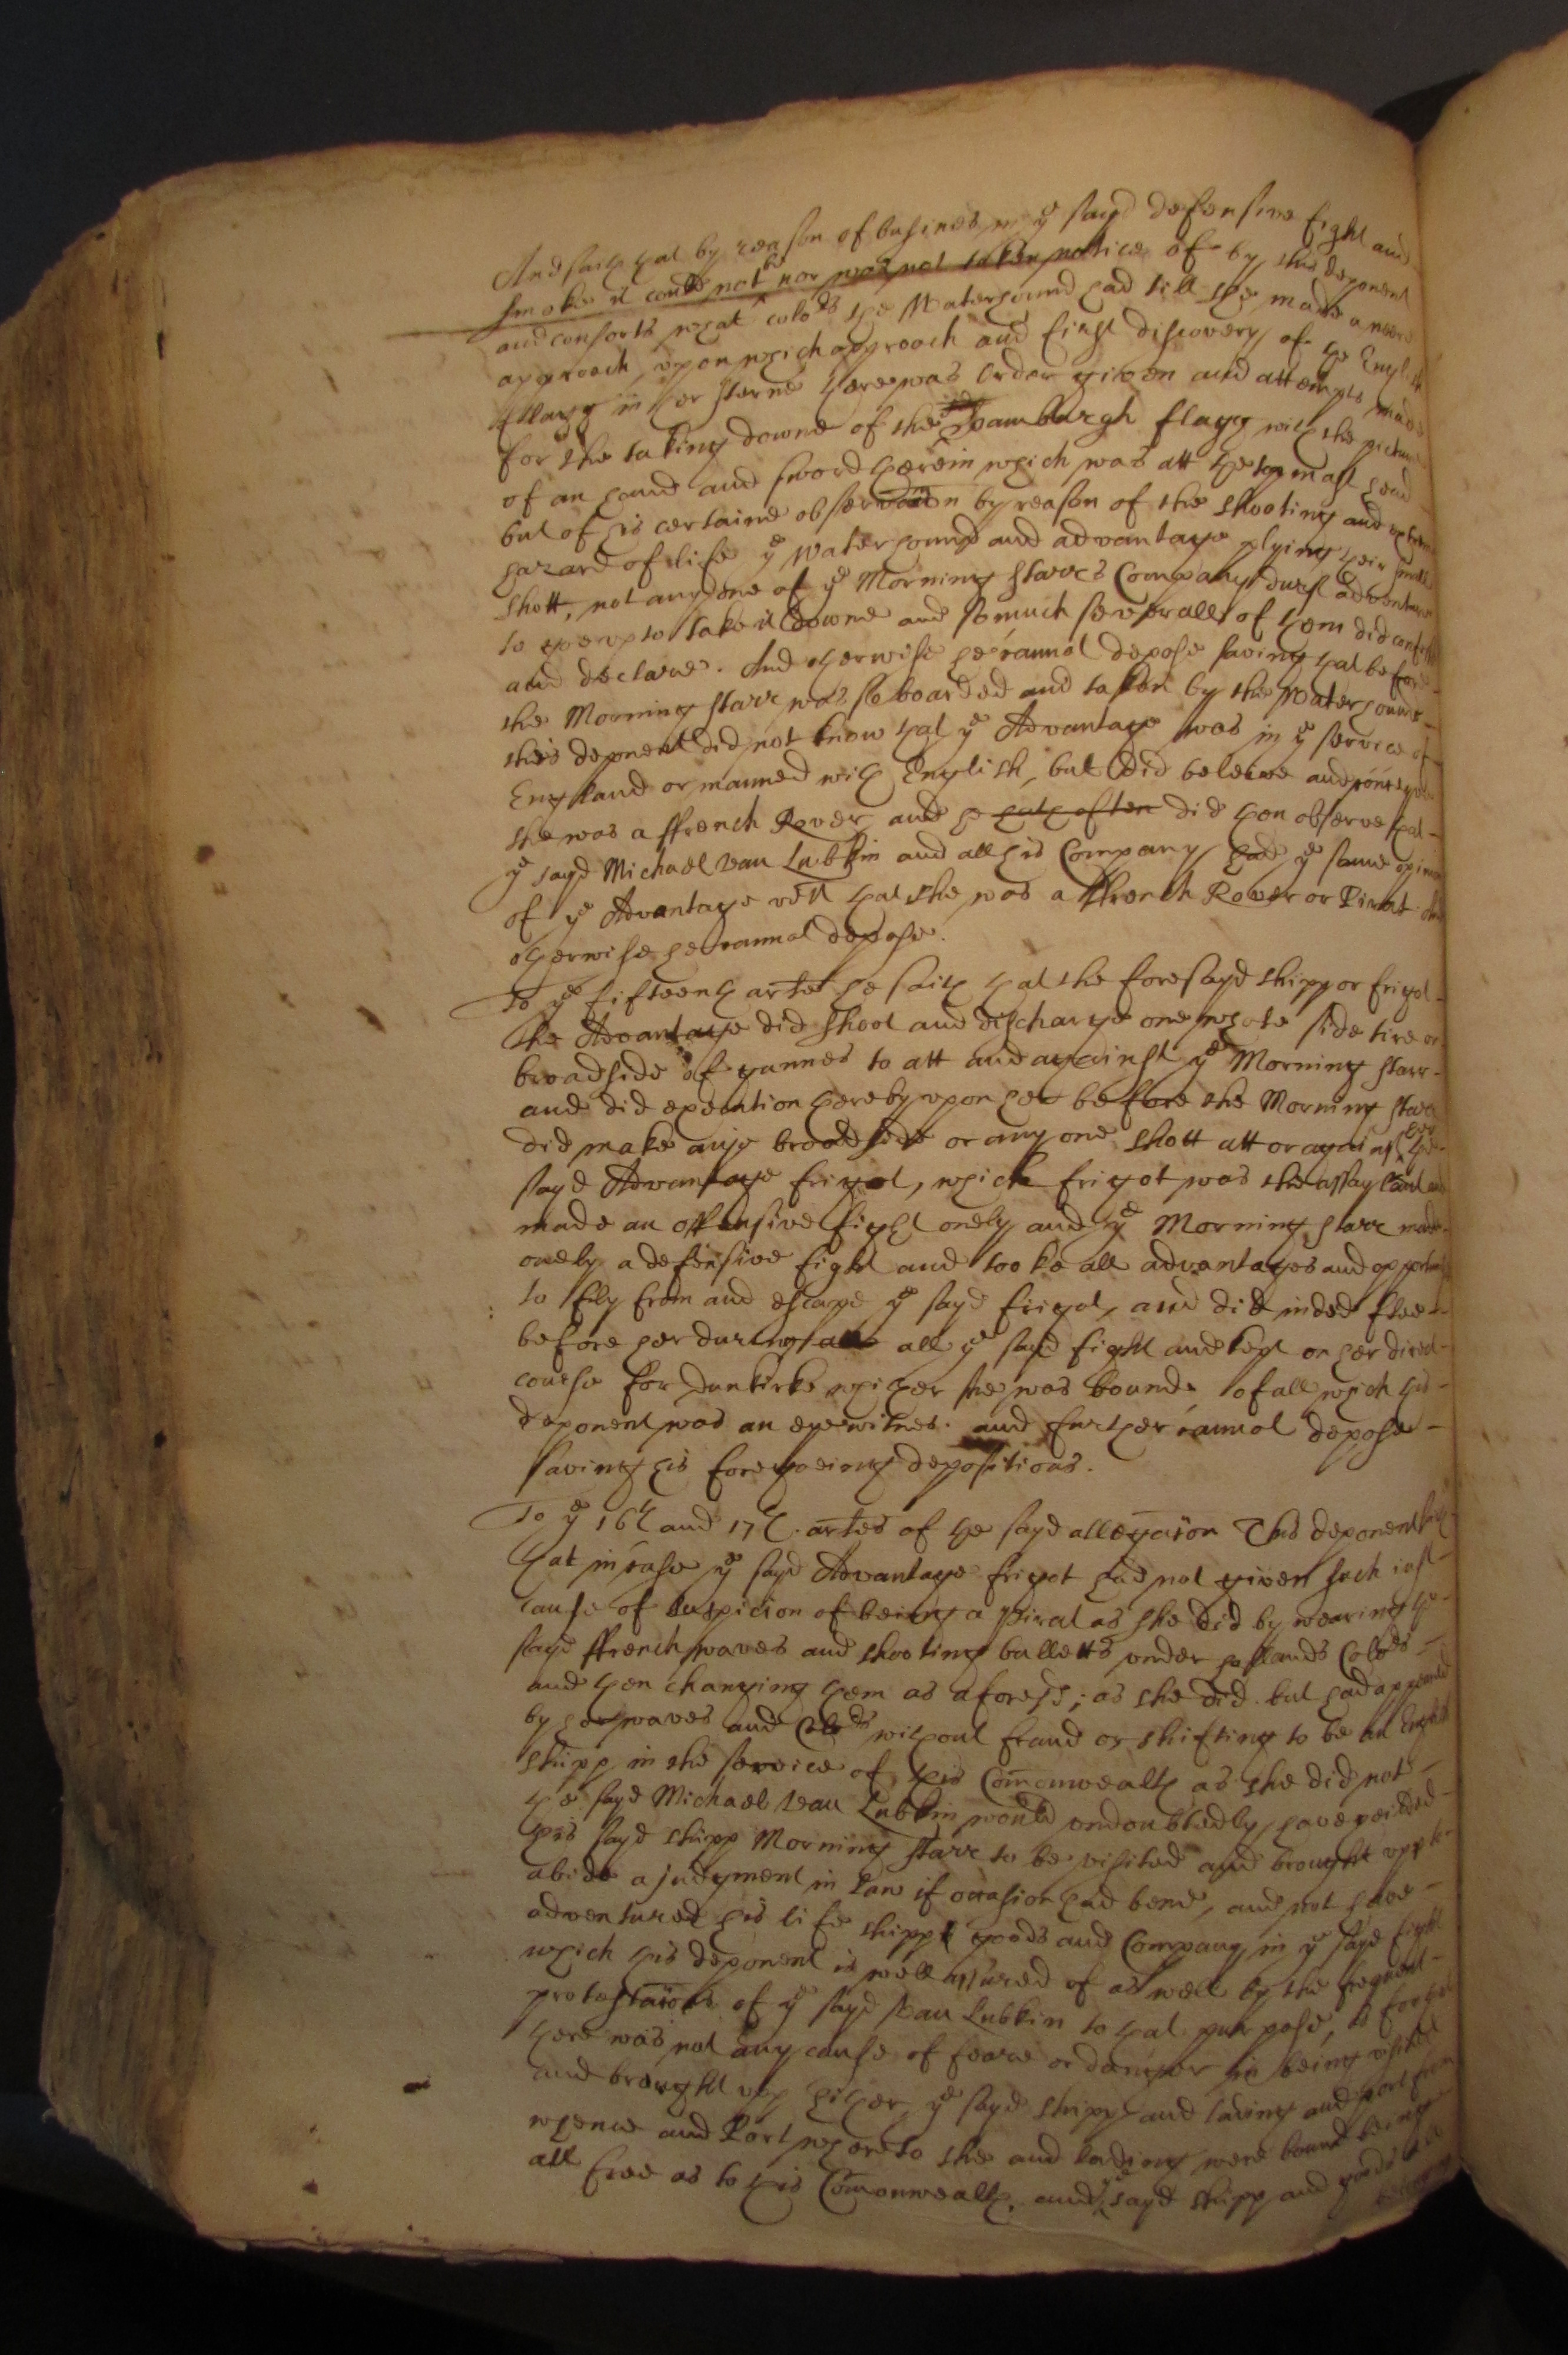 And saith that by reason of busines in ye sayd defensive fight and
smoke it could not be nor was not taken notice of by this deponent
and consorts what colors the Waterhound had till she made a neere
approach, upon which approach and first discovery of the English
fflagg in her sterne there was order given and attempts made
for the taking downe of the Hamburgh flagg with the picture
of an hand and sword therein which was att the topmast head
but of his certaine observacion by reason of the shooting and extreme
hazard of life ye Waterhound and advantage plying their small
shott, not any one of ye Morning starrs Company durst adventure
to goe up to take it downe and so much severall of them did confesse
and declare. And otherwise he cannot depose saving that before
the Morning starr was so boarded and taken by the Waterhound
this deponent did not know that ye Advantage was in ye service of
England or manned with English, but did beleeve and conceive
she was a ffrench Rover and he hath often did then observe that
ye sayd Michael van Lubkin and all his Company had ye same opinion
of ye Advantage vizt that she was a ffrench Rover or Pirat And
otherwise he cannot depose.
To ye fifteenth arle he saith that the foresayd shipp or frigot
the Advantage did shoot and discharge one whole side tire or
broadside of gunnes to att and against ye Morning starr
and did execution thereby upon her before the Morning starr
did make anye broadside or any one shott att or against her the
sayd Advantage frigot, which frigot was the assaylant and
made an offensive fight onely and ye Morning starr made
onely a defensive fight and tooke all advantages and
to fly from and escape ye sayd frigot, and did indeed flee
before her during all all ye sayd fight and kept on her direct
course for Dunkirke whither she was bound. of all which this
deponent was an eyewitnes. and further cannot depose
saving his foregoeing depositions.
To ye 16th and 17th. arles of the sayd allegacion This deponent saith
that in case ye sayd Advantage frigot had not given such just
cause of suspicion of being a Pirat as she did by wearing the
sayd ffrench waves and shooting bulletts under hollands Colors
and then changing them as aforesd; as she did. but had appeared
by her waves and Colors without fraud or shifting to be an English
shipp in the service of this Comonwealth as she did not
the sayd Michael van Lubkin would undoubtedly have yeilded
his sayd shipp Morning starr to be visited and brought upp to
abide a judgment in Law if occasion had bene, and not have
adventured his life shipp goods and Company in ye sayd fight
which this deponent is well assured of as well by the frequent
protestacions of ye sayd van Lubkin to that purpose, as for that
there was not any cause of feare or danger in being visited
and brought upp hither ye sayd shipp and lading and port from
whence and Port whereto she and lading were bound being
all free as to this Comonwealth. and ye sayd shipp and goods